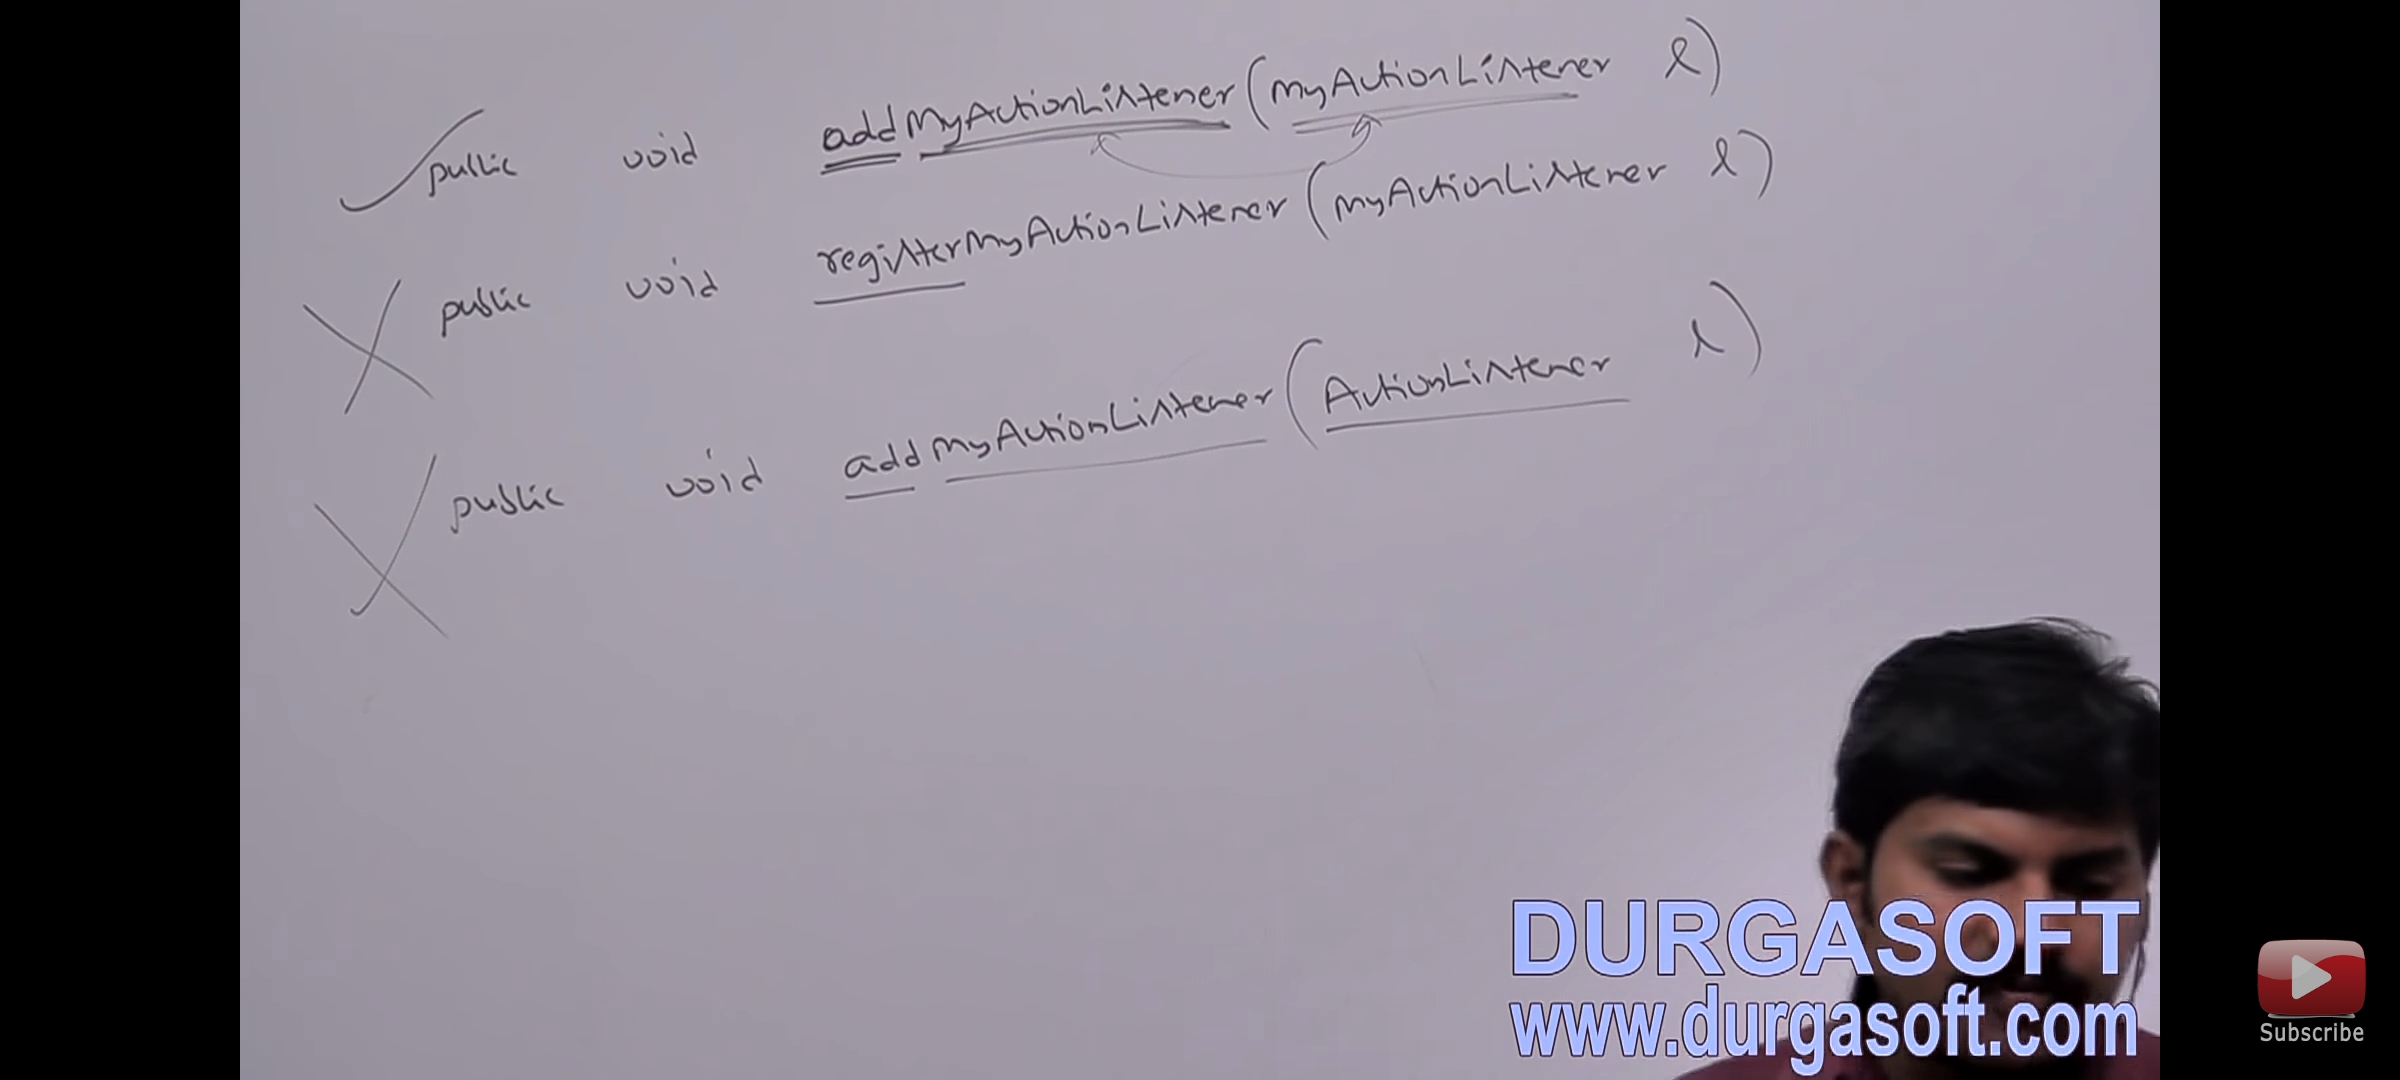 public void addMyActionListener(myActionListener l)
public void registerMyActionListener(myActionListener l)
public void addMyActionListener(ActionListener l)
DURGASOFT
www.durgasoft.com
Subscribe